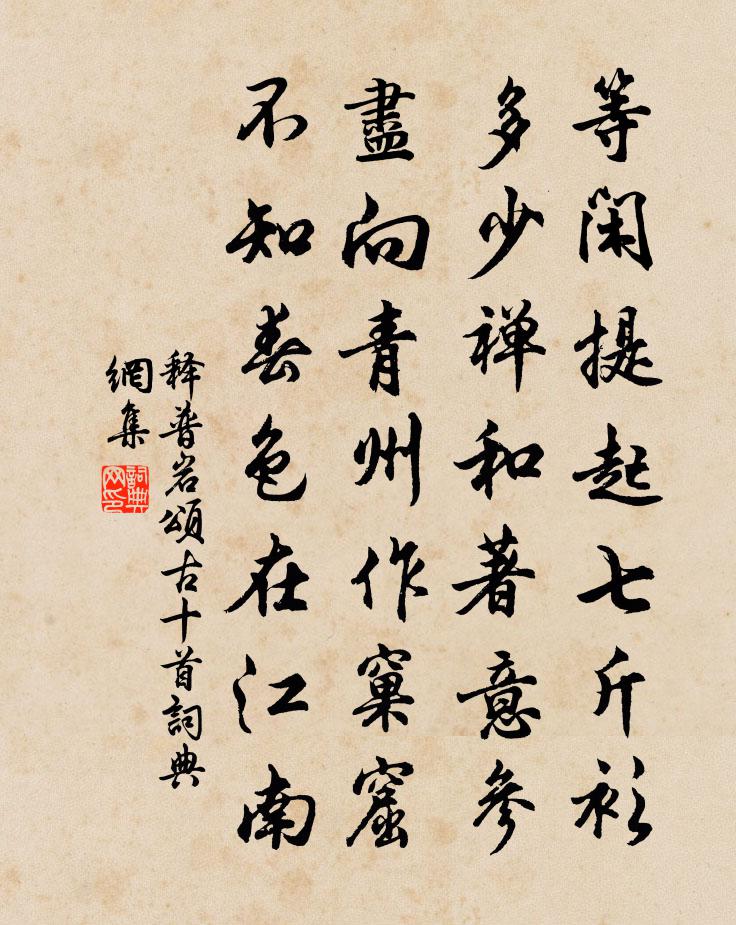 等闲提起七斤衫
多少禅和著意参
盡向青州作窠窟
不知春色在江南
释普岩頌古十首詞典
網集
詞典
网印